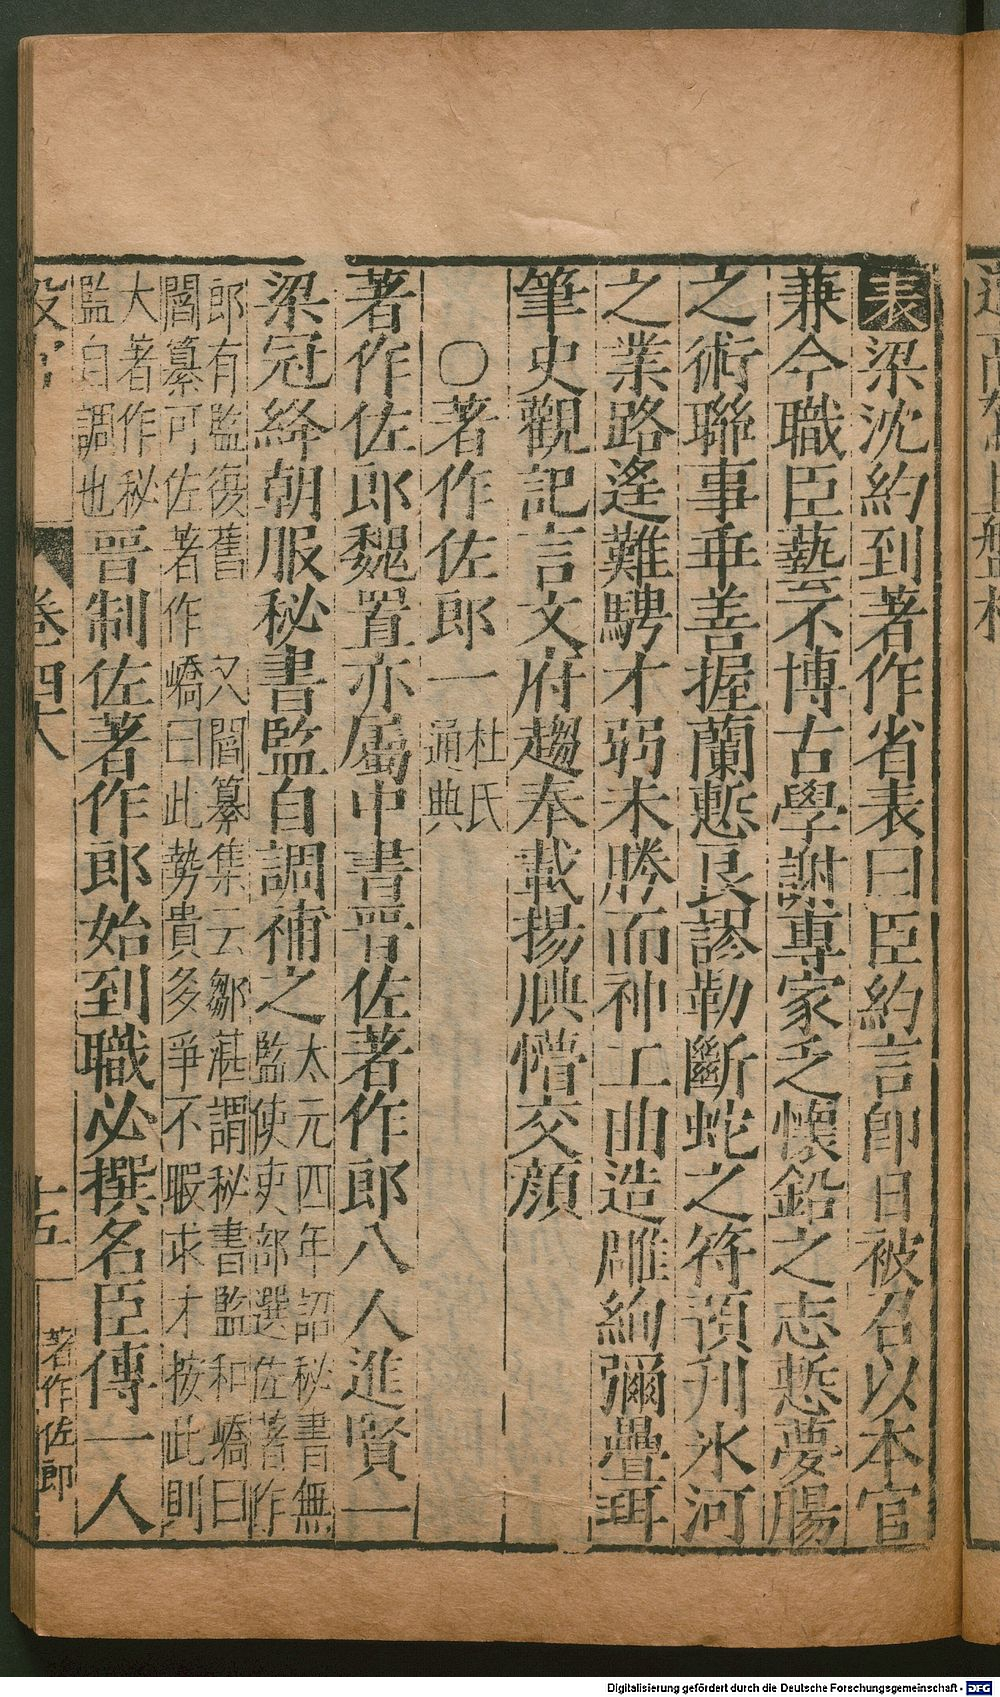 表梁沈約到著作省表曰臣約言即日被召以本官
兼今職臣藝不博古學謝專家乏懷鉛之志慙夢腸
之術聯事垂善握蘭慙良謬勒斷蛇之符預刋氷河
之業路遙難騁才弱未勝而神工曲造雕絢彌疊珥
筆史觀記言文府趨奉載揚腆懵交顔
○著作佐郎一杜氏
通典
著作佐郎魏置亦屬中書晋佐著作郎八人進賢一
梁冠絳朝服秘書監自調補之太元四年詔秘書無
監使吏部選佐著作
郎有監復舊 又閻纂集云鄒湛謂秘書監和嶠曰
閻纂可佐著作嶠曰此勢貴多爭不暇求才按此則
大著作秘
監自調也晋制佐著作郎始到職必撰名臣傳一人
卷四
十五
著作佐郎
Digitalisierung gefördert durch die Deutsche Forschungsgemeinschaft - DFG